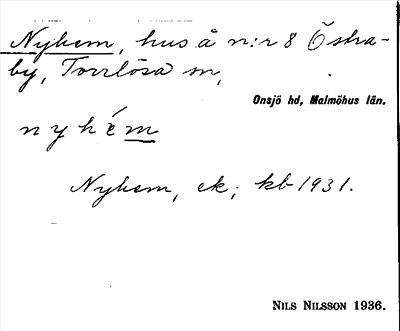 Nyhem, hus å n:r 8 Östra-
by, Torrlösa sn,
Onsjö hd, Malmöhus län.
nyhém
Nyhem, ek; kb 1931.
NILS NILSSON 1936.